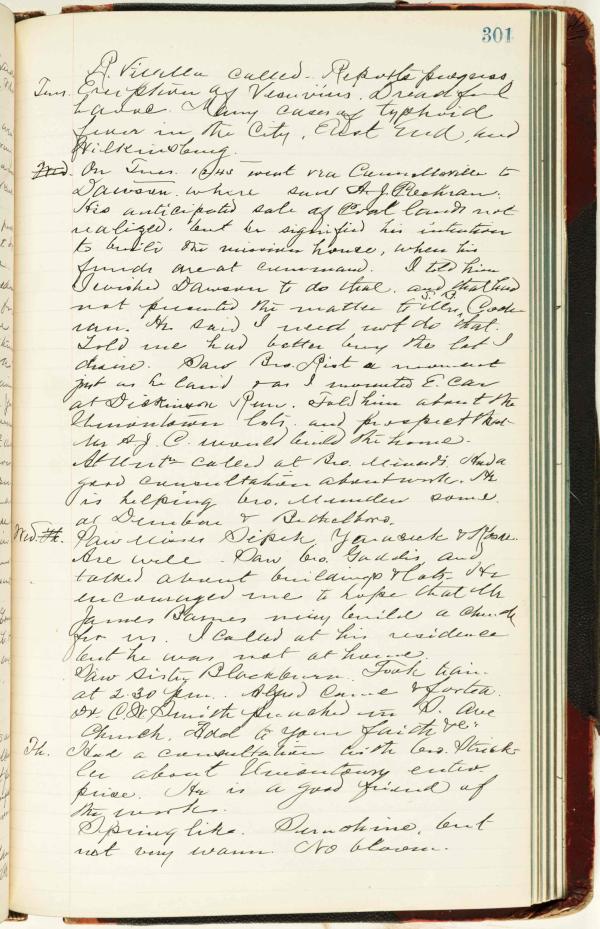 301
P. Vilella called. Reports progress.
Tues. Eruption of Vesuvius. Dreadful
havoc. Many cases of typhoid
fever in the City, East End, and
Wilkinsburg.
Wed. On Tues. 12.45 went via Connellsville to
Dawson where saw A. J. Cochran.
His anticipated sale of Coal lands not
realized, but he signified his intention
to build the mission house, when his
funds are at command. I told him
I wished Dawson to do that and that had
not presented the matter to Mrs. S. Coch-
ran. He said I need not do that.
Told me had better buy the lot I
desire. Saw Bro. Rist a moment
just as he land & as I mounted E. Car
at Dickinson Run. Told him about the
Uniontown lots and prospect that
Mr A J. C. would build the home.
At Untn called at Bro. Minard's. Had a
good consultation about work. He
is helping bro. Munden some
at Dunbar & Bethelboro.
Wed. Th. Saw Misses Sipek, &
Are well. Saw bro. Gaddis and
talked about buildings & lots. He
encouraged me to hope that Mr
James Barnes may build a Church
for us. I called at his residence
but he was not at home.
Saw Sister Blackburn. Took train
at 2.30 p.m. Alfred came &
Dr. C. W. Smith preached in Ave
Church. Add to your faith &c.
Th. Had a consultation with bro. Strick-
ler about Uniontown enter-
prise. He is a good friend of
the work.
Springlike. Sunshine, but
not very warm. No bloom.